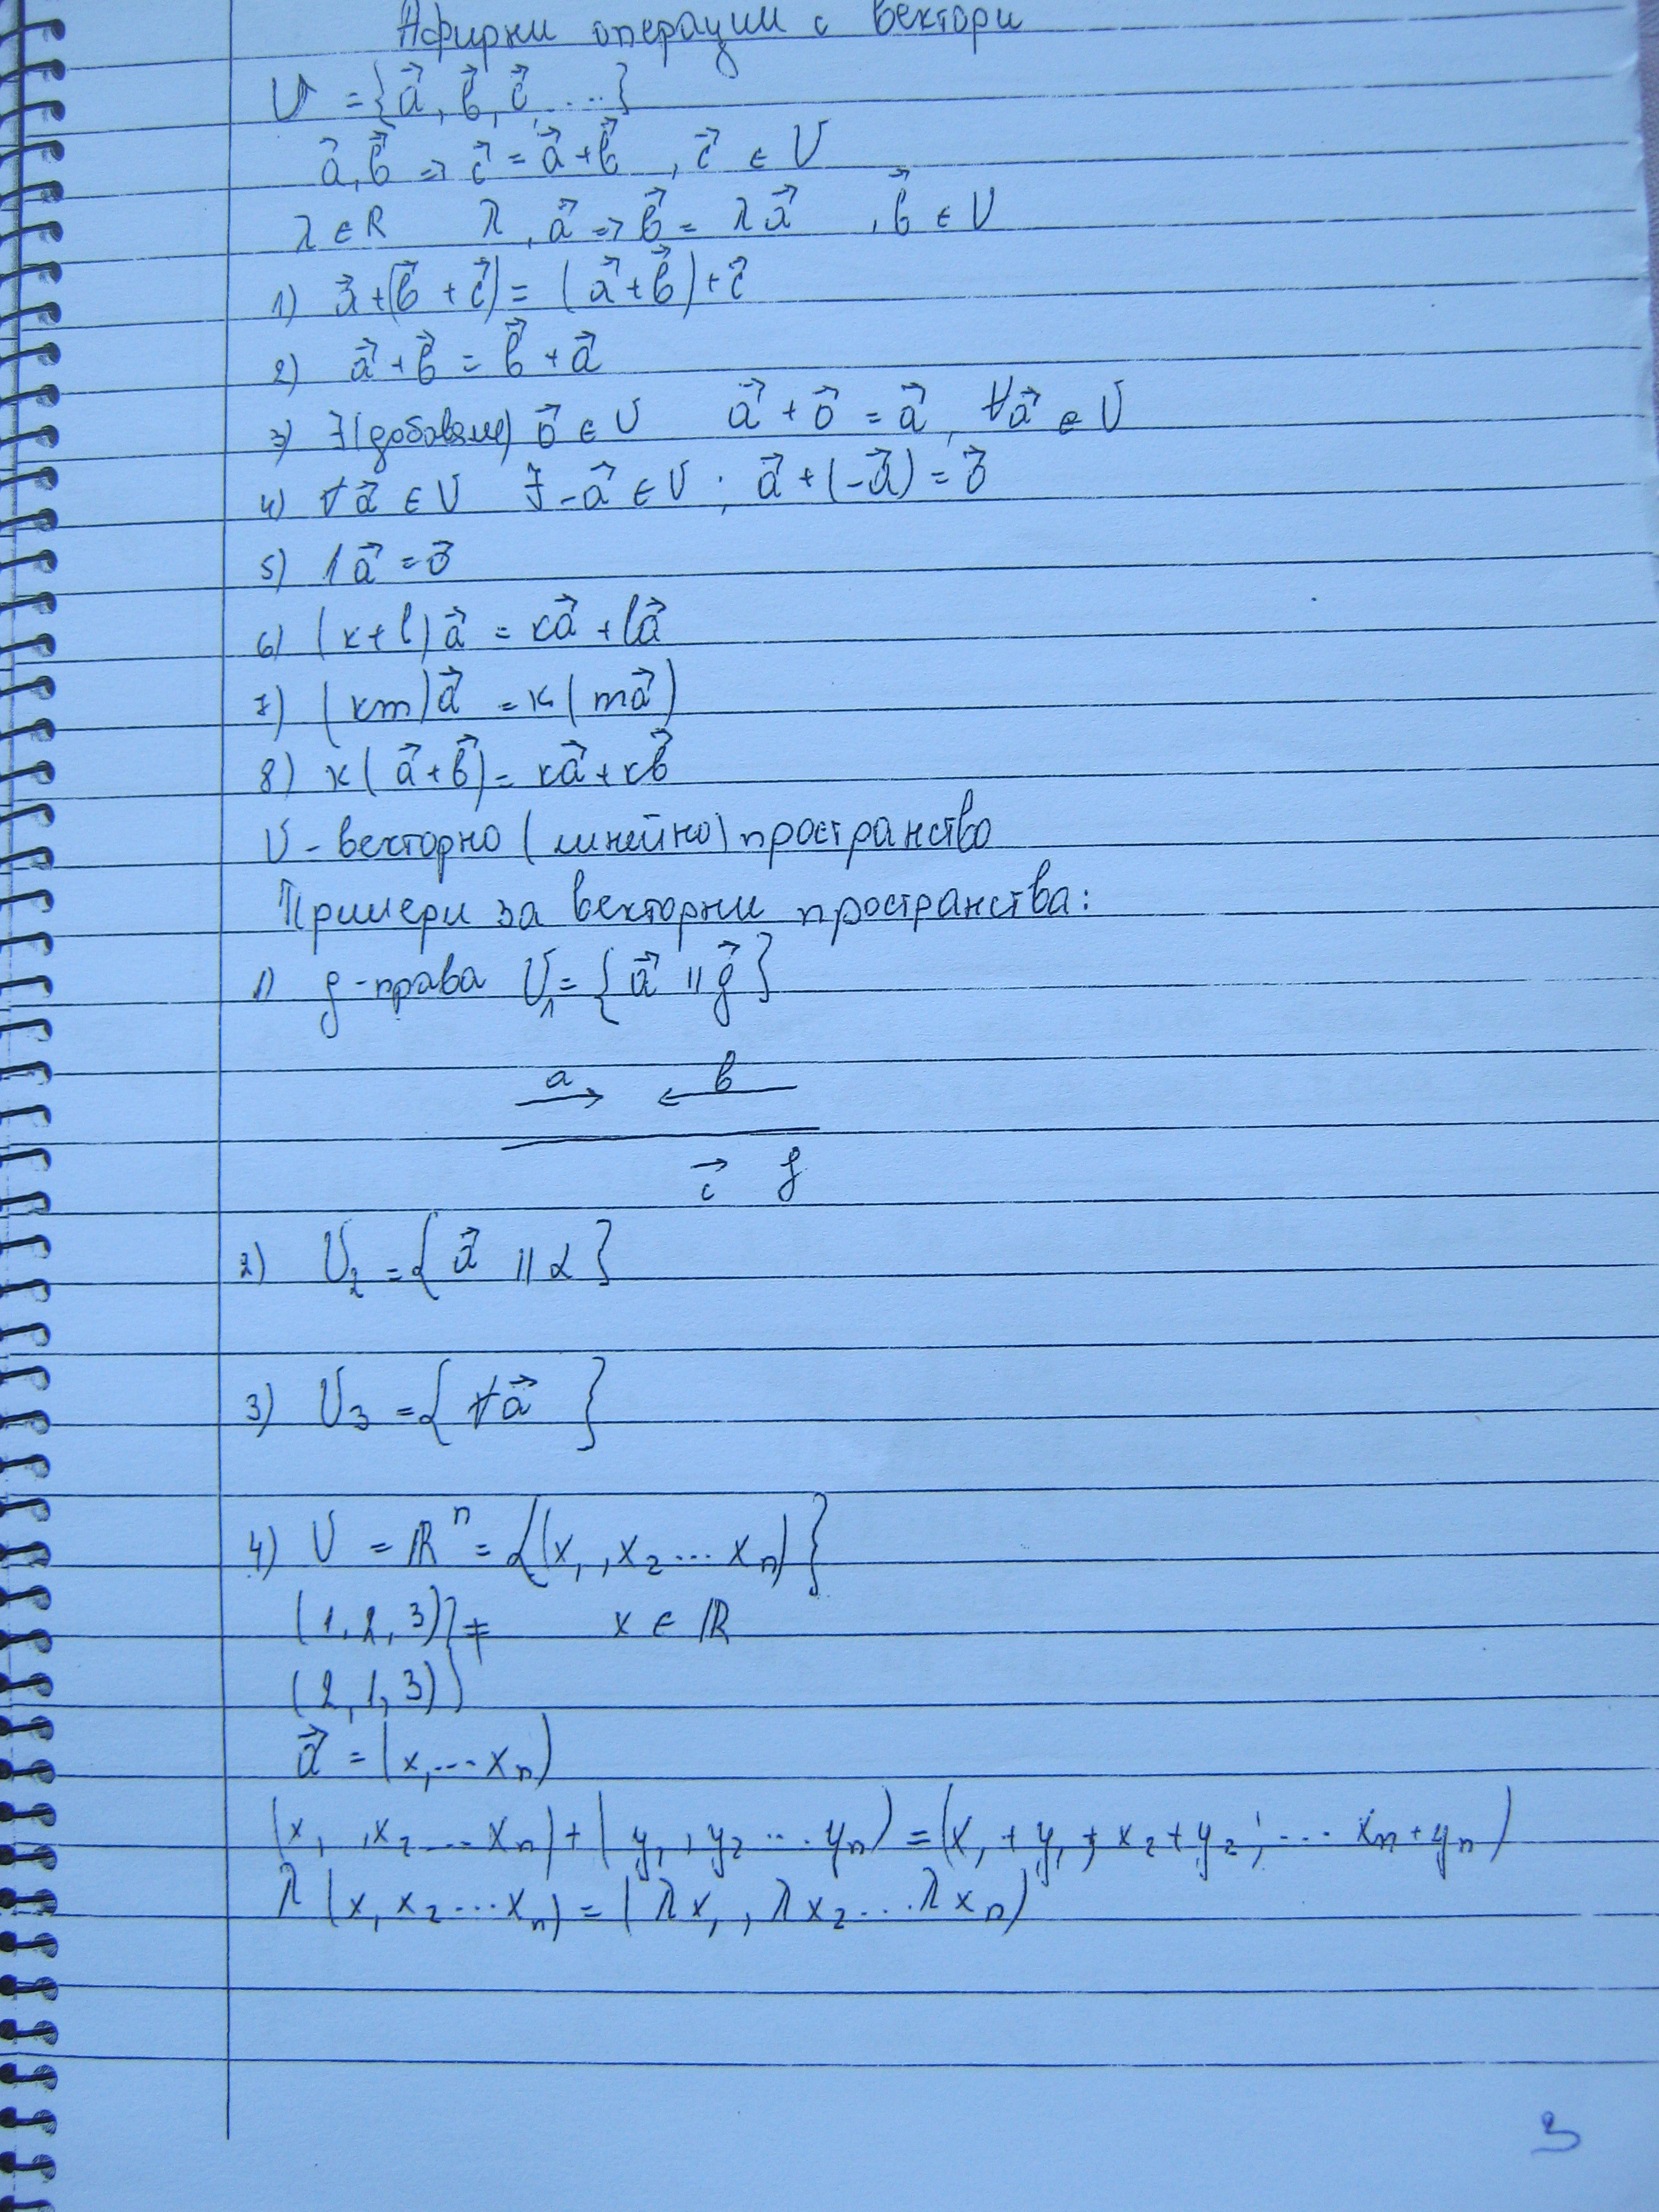 Афирни операции с вектори
U = {a⃗, b⃗, c⃗, ...}
a⃗, b⃗ => c⃗ = a⃗ + b⃗ , c⃗ ∈ U
λ ∈ R λ, a⃗ => b⃗ = λa⃗ , b⃗ ∈ U
1) a⃗ + (b⃗ + c⃗) = (a⃗ + b⃗) + c⃗
2) a⃗ + b⃗ = b⃗ + a⃗
3) ∃(добавяме) o⃗ ∈ U a⃗ + o⃗ = a⃗, ∀a⃗ ∈ U
4) ∀a⃗ ∈ U ∃ -a⃗ ∈ U ; a⃗ + (-a⃗) = o⃗
5) 1a⃗ = o⃗
6) (k+l)a⃗ = ka⃗ + la⃗
7) (km)a⃗ = k(ma⃗)
8) k(a⃗ + b⃗) = ka⃗ + kb⃗
U - векторно (линейно) пространство
Примери за векторни пространства:
1) g - права U₁ = {a⃗ || g⃗}
a b
c⃗ g
2) U₂ = {a⃗ || α}
3) U₃ = {∀a⃗ }
4) U = ℝⁿ = {(x₁, x₂ ... xₙ)}
(1, 2, 3) } ≠ x ∈ ℝ
(2, 1, 3) }
a⃗ = (x₁ ... xₙ)
(x₁, x₂ ... xₙ) + (y₁, y₂ ... yₙ) = (x₁ + y₁ + x₂ + y₂, ... xₙ + yₙ)
λ(x₁ x₂ ... xₙ) = (λx₁, λx₂ ... λxₙ)
3